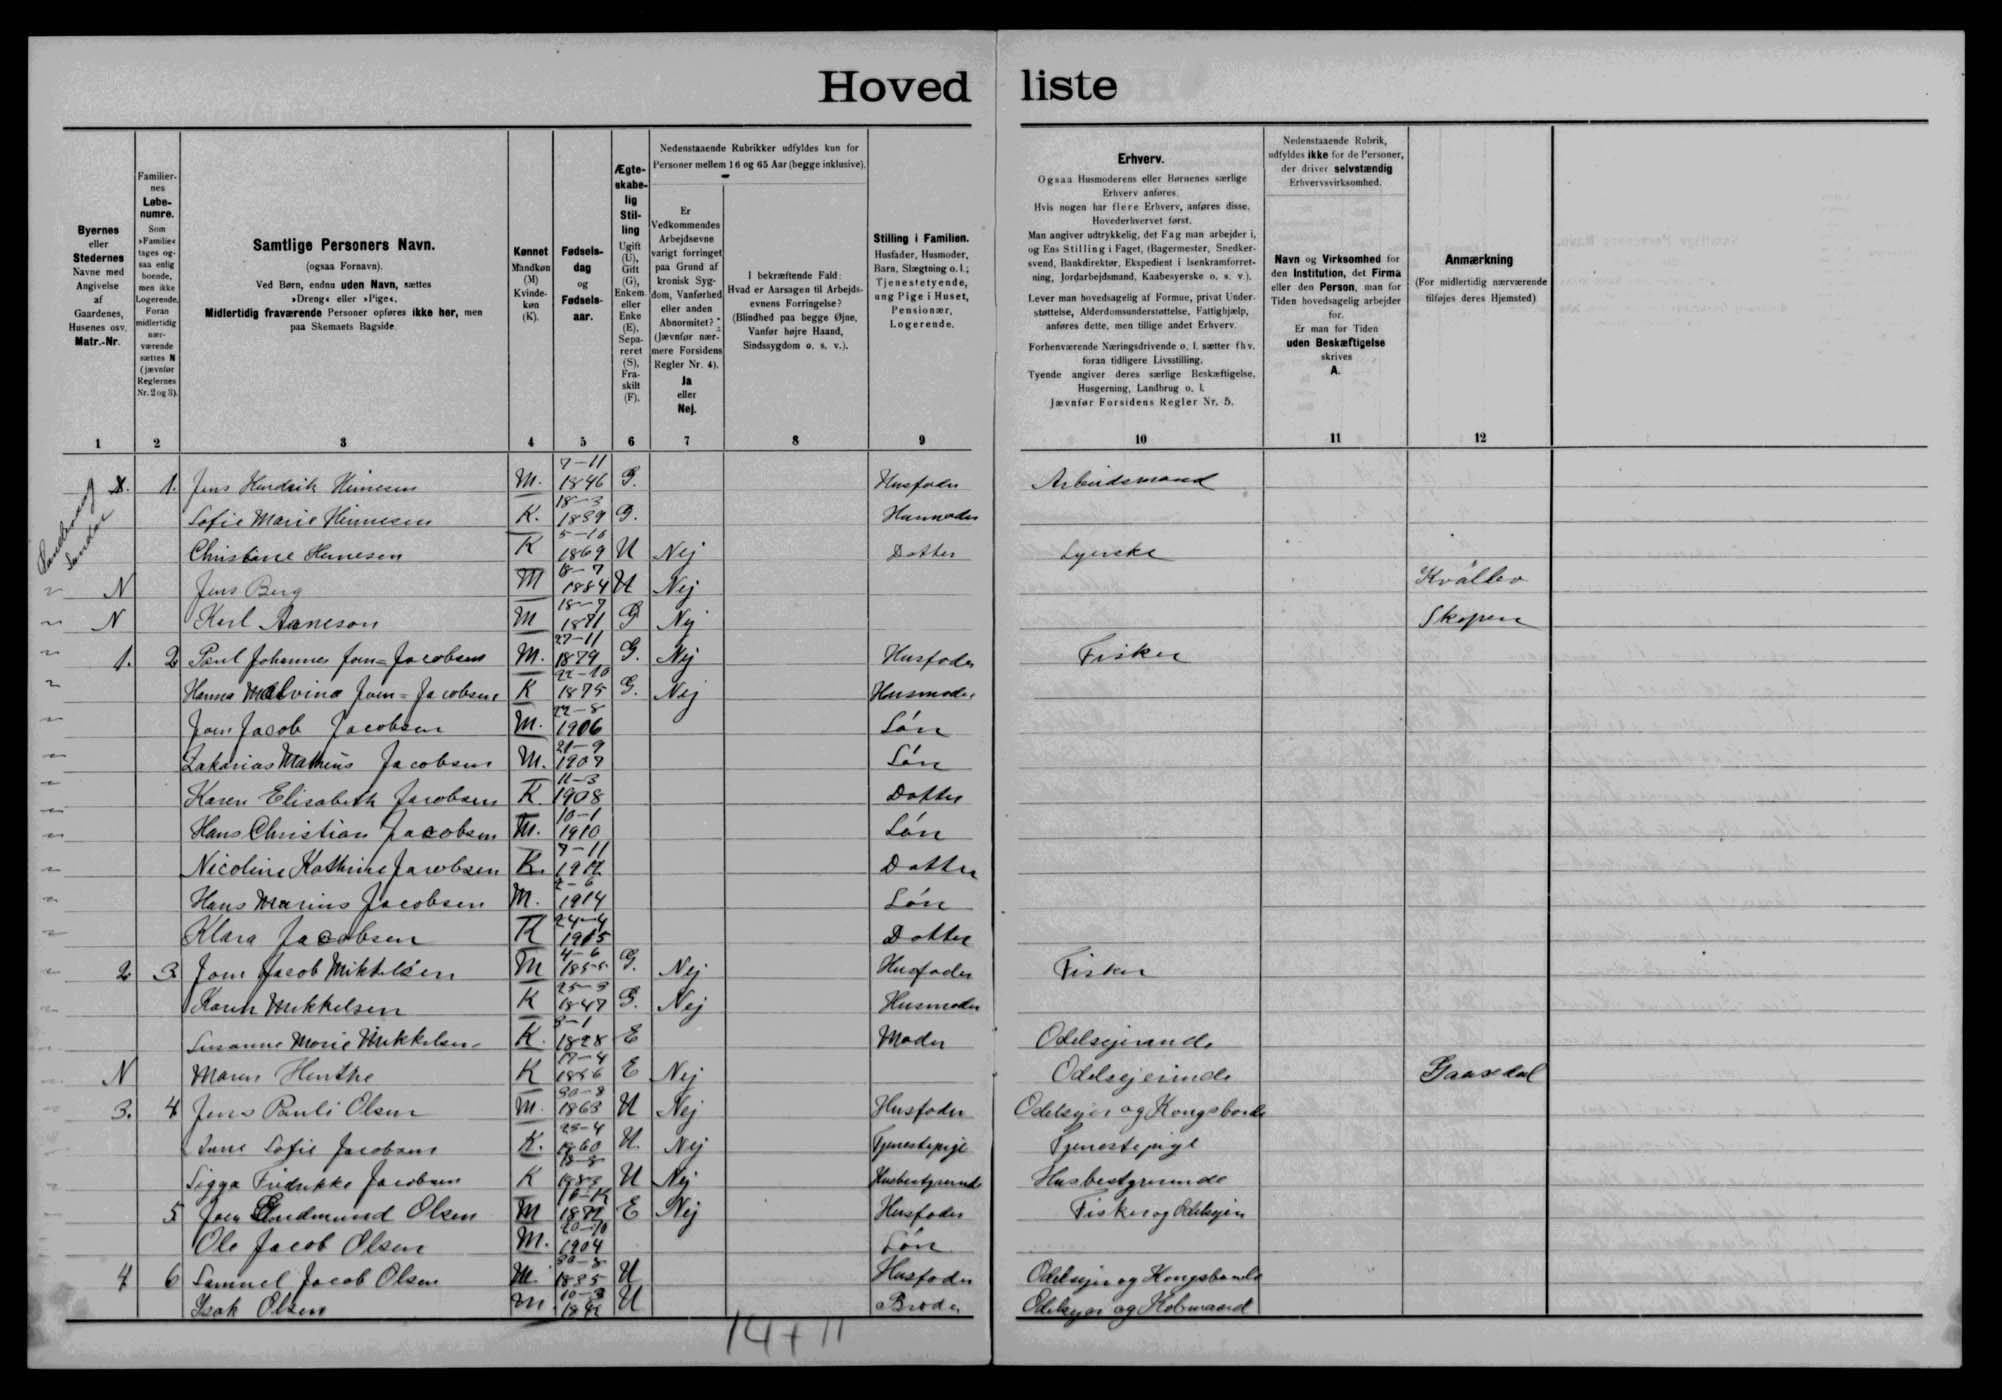 Hoved liste
Byernes
eller
Stedernes
Navne med
Angivelse
af
Gaardenes,
Husenes osv.
Matr.-Nr.
Familier-
nes
Løbe-
numre.
Som
»Familie«
tages og-
saa enlig
boende,
men ikke
Logerende.
Foran
midlertidig
nær-
værende
sættes N
(jævnfør
Reglernes
Nr. 2 og 3).
Samtlige Personers Navn.
(ogsaa Fornavn).
Ved Børn, endnu uden Navn, sættes
»Dreng« eller »Pige«.
Midlertidig fraværende Personer opføres ikke her, men
paa Skemaets Bagside.
Kønnet
Mandkøn
(M)
Kvinde-
køn
(K).
Fødsels-
dag
og
Fødsels-
aar.
Ægte-
skabe-
lig
Stil-
ling
Ugift
(U),
Gift
(G),
Enkem.
eller
Enke
(E),
Sepa-
reret
(S),
Fra-
skilt
(F).
Nedenstaaende Rubrikker udfyldes kun for
Personer mellem 16 og 65 Aar (begge inklusive).
Er
Vedkommendes
Arbejdsevne
varigt forringet
paa Grund af
kronisk Syg-
dom, Vanførhed
eller anden
Abnormitet?
(Jævnfør nær-
mere Forsidens
Regler Nr. 4).
Ja
eller
Nej.
I bekræftende Fald:
Hvad er Aarsagen til Arbejds-
evnens Forringelse?
(Blindhed paa begge Øjne,
Vanfør højre Haand,
Sindssygdom o. s. v.).
Stilling i Familien.
Husfader, Husmoder,
Barn, Slægtning o. l.;
Tjenestetyende,
ung Pige i Huset,
Pensionær,
Logerende.
Erhverv.
Ogsaa Husmoderens eller Børnenes særlige
Erhverv anføres.
Hvis nogen har flere Erhverv, anføres disse,
Hovederhvervet først.
Man angiver udtrykkelig, det Fag man arbejder i,
og Ens Stilling i Faget, (Bagermester, Snedker-
svend, Bankdirektør, Ekspedient i Isenkramforret-
ning, Jordarbejdsmand, Kaabesyerske o. s. v.).
Lever man hovedsagelig af Formue, privat Under-
støttelse, Alderdomsunderstøttelse, Fattighjælp,
anføres dette, men tillige andet Erhverv.
Forhenværende Næringsdrivende o. l. sætter fhv.
foran tidligere Livsstilling.
Tyende angiver deres særlige Beskæftigelse,
Husgerning, Landbrug o. l.
Jævnfør Forsidens Regler Nr. 5.
Nedenstaaende Rubrik,
udfyldes ikke for de Personer,
der driver selvstændig
Erhvervsvirksomhed.
Navn og Virksomhed for
den Institution, det Firma
eller den Person, man for
Tiden hovedsagelig arbejder
for.
Er man for Tiden
uden Beskæftigelse
skrives
A.
Anmærkning
(For midlertidig nærværende
tilføjes deres Hjemsted)
1 2 3 4 5 6 7 8 9 10 11 12
1. Jens Hendrik M. 7-11 1846 G. Husfader Arbeidsmand
Sofie Marie K. 18-3 G. Husmoder
K 5-10 1869 U Nej Datter Syerske
N Jens Berg M 8-7 1884 U Nej
N M 18-7 G Nej Skopen
1. 2 Poul Johannes Joen=Jacobsen M. 27-11 1879 G. Nej Husfader Fisker
Hanna Malvina Joen=Jacobsen K 22-10 G. Nej Husmoder
Joen Jacob Jacobsen M. 22-8 1906 Søn
Zakarias Mathius Jacobsen M. 21-9 Søn
Karen Elisabeth Jacobsen K. 11-3 1908 Datter
Hans Christian Jacobsen M. 10-1 1910 Søn
Nicoline Kathrine Jacobsen K. 7-11 Datter
Hans Marius Jacobsen M. 2-6 1914 Søn
Klara Jacobsen K 24-4 1915 Datter
2 3 Joen Jacob Mikkelsen M 4-6 1855 G. Nej Husfader Fisker
Karen Mikkelsen K 25-3 1847 G. Nej Husmoder
Susanne Marie Mikkelsen K. 1828 E Moder Odelsejerinde
N Maren K 17-4 E Nej Odelsejerinde Gaasedal
3. 4 Jens Pauli Olsen M. 1863 U Nej Husfader Odelsejer og Kongsbonde
Anne Sofie Jacobsen K. 25-4 1860 U Nej Tjenestepige Tjenestepige
Sigga Fredrikke Jacobsen K U Nej Husbestyrerinde Husbestyrerinde
5 Joen Gudmund Olsen M E Nej Husfader Fisker og Odelsejer
Ole Jacob Olsen M. 20-10 1904 Søn
4 6 Samuel Jacob Olsen M. U Husfader Odelsejer og Kongsbonde
Isak Olsen M. 10-3 U Broder Odelsejer og Købmand
14 + 11